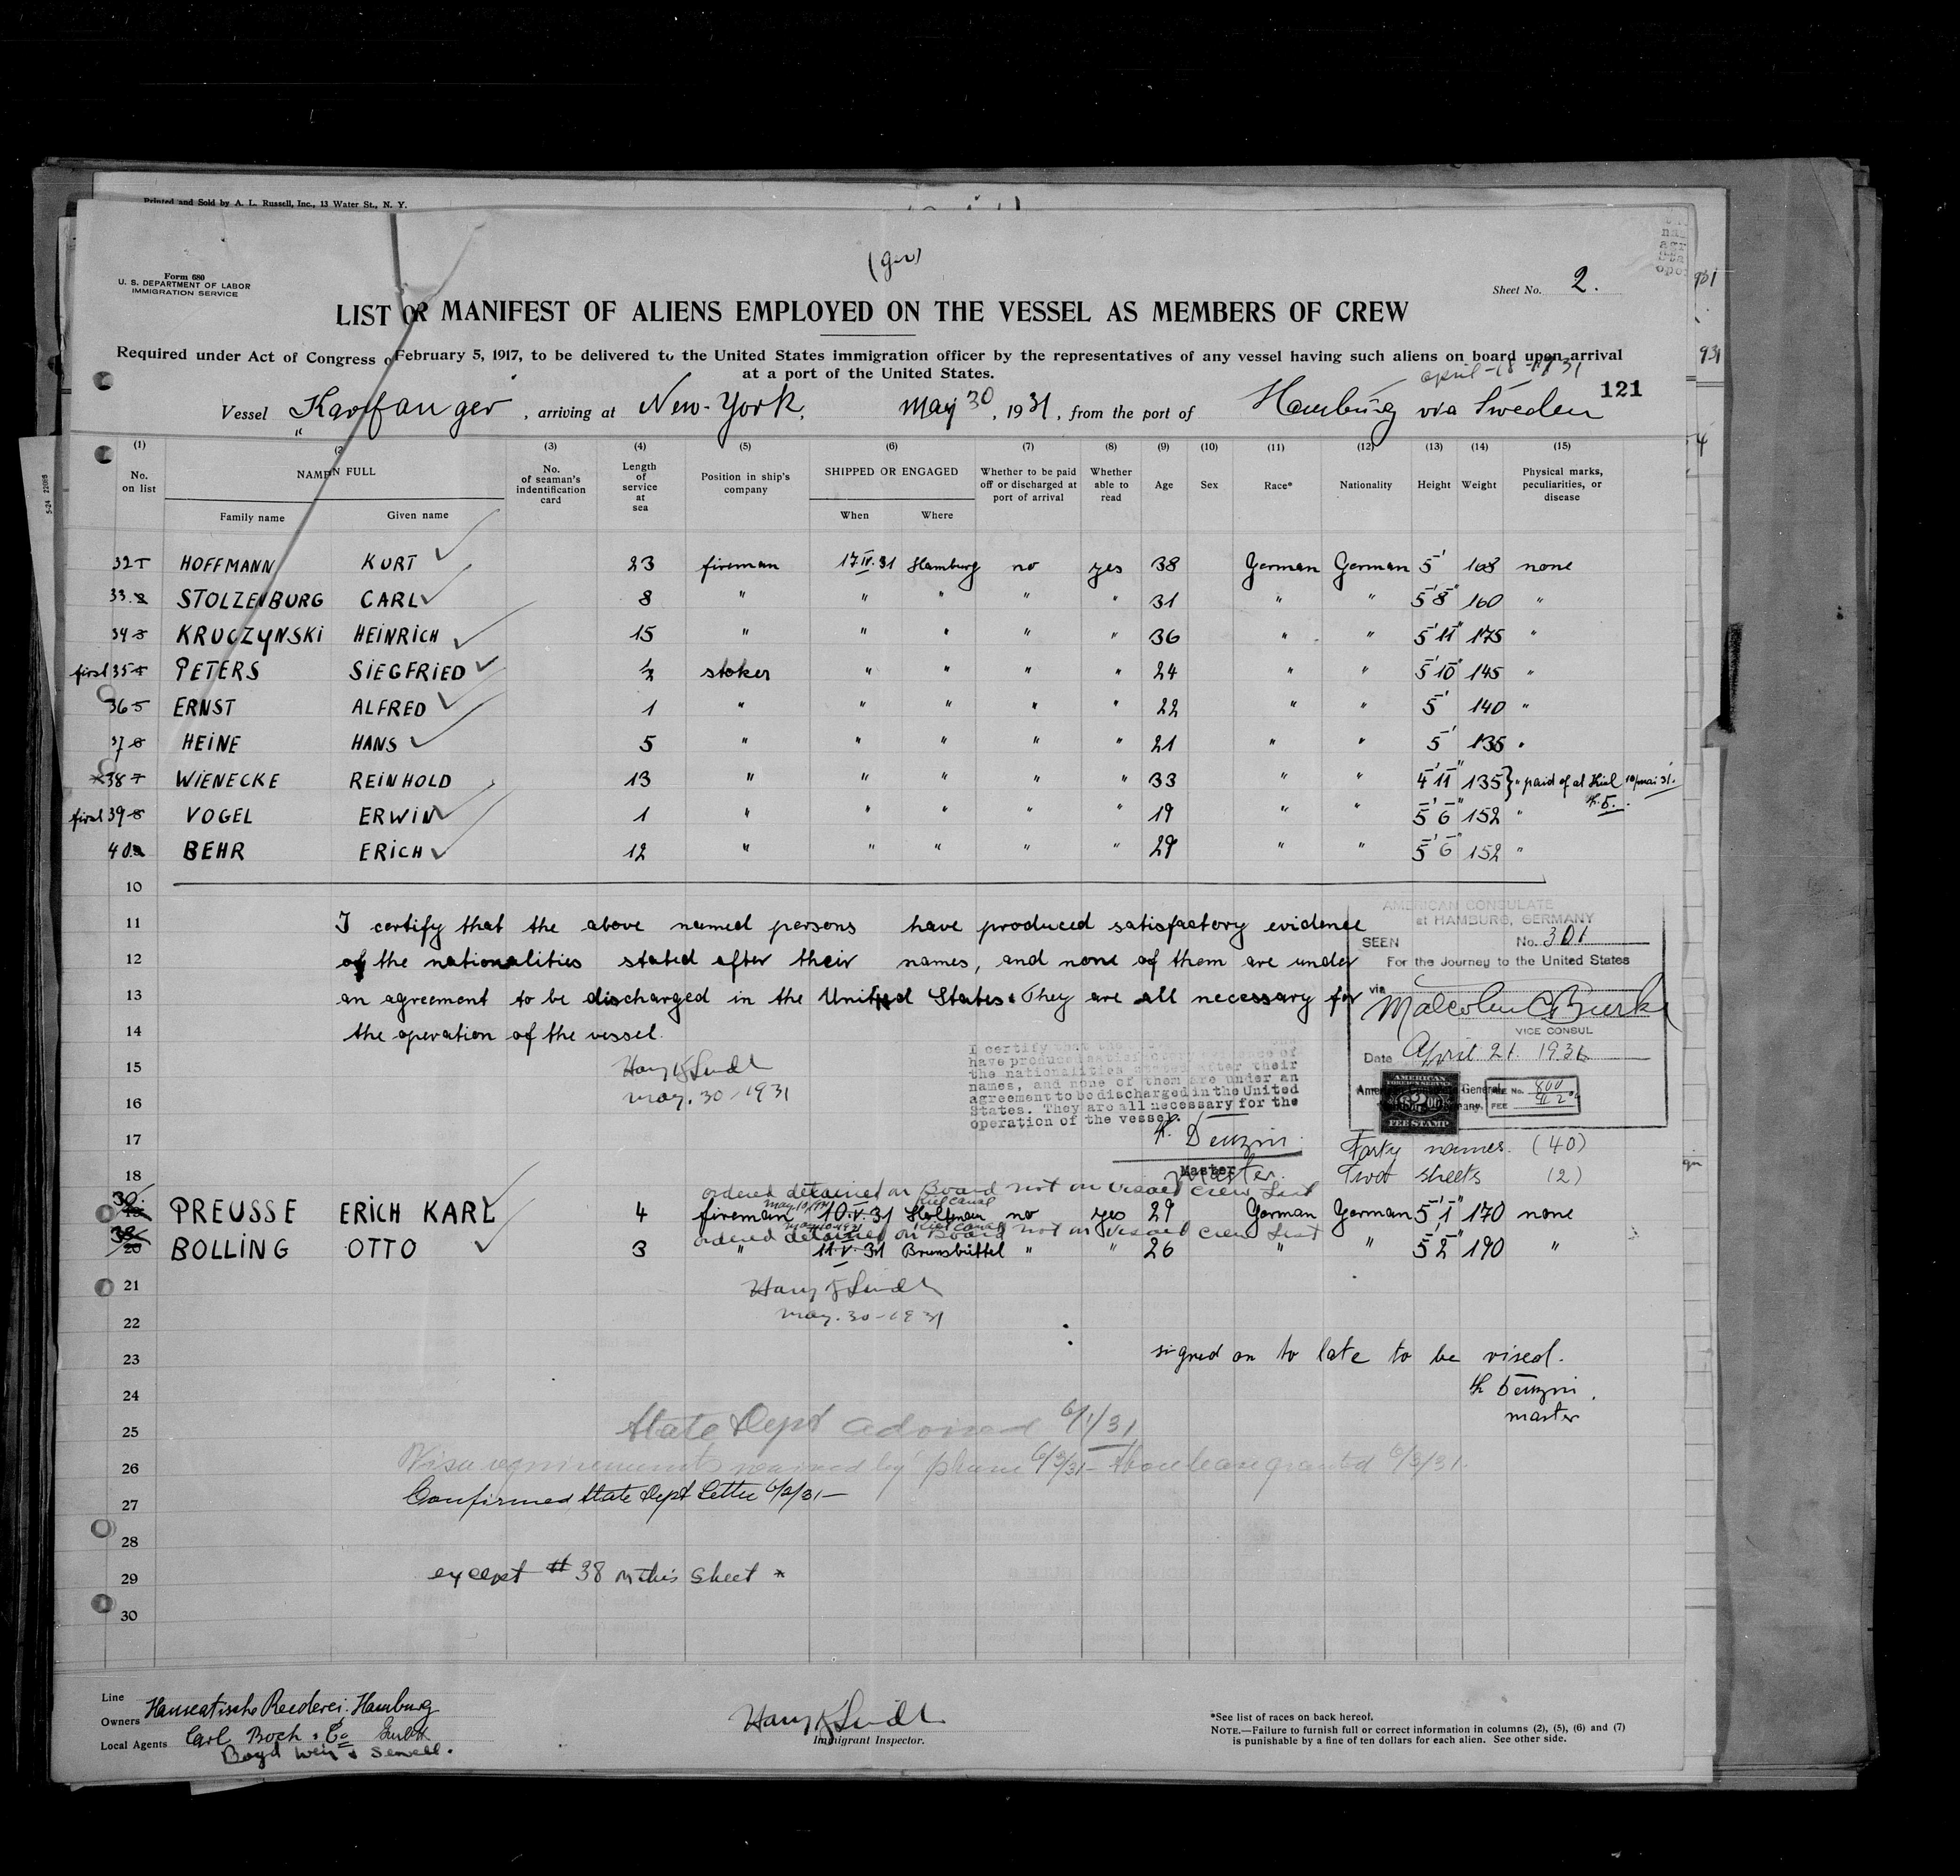 Printed and Sold by A. L. Russell, Inc., 13 Water St., N. Y.
Form 680
U. S. DEPARTMENT OF LABOR
IMMIGRATION SERVICE
Sheet No. 2.
LIST OR MANIFEST OF ALIENS EMPLOYED ON THE VESSEL AS MEMBERS OF CREW
Required under Act of Congress of February 5, 1917, to be delivered to the United States immigration officer by the representatives of any vessel having such aliens on board upon arrival
at a port of the United States.
April-18-1931
121
Vessel "Karpfanger", arriving at New-York, May 30, 1931, from the port of Hamburg via Sweden
(1) (2) (3) (4) (5) (6) (7) (8) (9) (10) (11) (12) (13) (14) (15)
No. on list NAME IN FULL Family name Given name No. of seaman's indentification card Length of service at sea Position in ship's company SHIPPED OR ENGAGED When Where Whether to be paid off or discharged at port of arrival Whether able to read Age Sex Race* Nationality Height Weight Physical marks, peculiarities, or disease
32 HOFFMANN KURT 23 fireman 17.IV.31 Hamburg no yes 38 German German 5' 168 none
33 STOLZENBURG CARL 8 " " " " " 31 " " 5'8" 160 "
34 KRUCZYNSKI HEINRICH 15 " " " " " 36 " " 5'11" 175 "
first 35 PETERS SIEGFRIED ½ stoker " " " " 24 " " 5'10" 145 "
36 ERNST ALFRED 1 " " " " " 22 " " 5' 140 "
37 HEINE HANS 5 " " " " " 21 " " 5' 135 "
x38 WIENECKE REINHOLD 13 " " " " " 33 " " 4'11" 135 } " paid of at Kiel 10/mai 31.
first 39 VOGEL ERWIN 1 " " " " " 19 " " 5'6" 152 "
40 BEHR ERICH 12 " " " " " 29 " " 5'6" 152 "
10
11 I certify that the above named persons have produced satisfactory evidence
12 of the nationalities stated after their names, and none of them are under
13 an agreement to be discharged in the United States. They are all necessary for
14 the operation of the vessel.
AMERICAN CONSULATE
at HAMBURG, GERMANY
SEEN No. 301
For the Journey to the United States
via
Malcolm C Burke
VICE CONSUL
Date April 21. 1931
AMERICAN
FOREIGN SERVICE
FEE STAMP
General
FEE No. 800
FEE
15
May. 30-1931
16
I certify that the
have produced satisfactory evidence of
the nationalities stated after their
names, and none of them are under an
agreement to be discharged in the United
States. They are all necessary for the
operation of the vessel.
17
Master
Forty names. (40)
18
Two sheets (2)
ordered detained on Board not on visaed crew List
PREUSSE ERICH KARL 4 fireman 10.V.31 Holtenau no yes 29 German German 5'1" 170 none
Kiel Canal
ordered detained on Board not on visaed crew List
20 BOLLING OTTO 3 " 11.V.31 Brunsbüttel " " 26 " " 5'2" 190 "
21
May. 30-1931
22
23 signed on to late to be visaed.
24
master
25 State Dept advised 6/1/31
26 Visa requirements waived by phone 6/3/31 - Shore leave granted 6/3/31.
27 Confirmed State Dept Letter 6/2/31 -
28
29 except # 38 on this sheet *
30
Line
Owners Hanseatische Reederei, Hamburg
Carl Boch & Co
Local Agents Boyd Weir & Sewell.
Immigrant Inspector.
*See list of races on back hereof.
NOTE.—Failure to furnish full or correct information in columns (2), (5), (6) and (7)
is punishable by a fine of ten dollars for each alien. See other side.